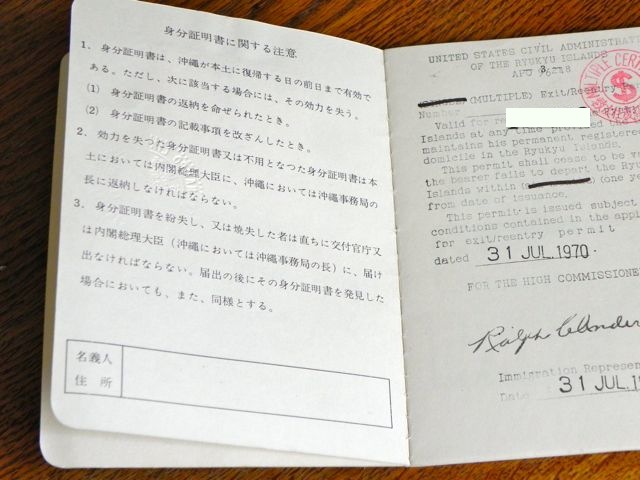 身分証明書に関する注意
1. 身分証明書は、沖縄が本土に復帰する日の前日まで有効で
ある。ただし、次に該当する場合には、その効力を失う。
(1) 身分証明書の返納を命ぜられたとき。
(2) 身分証明書の記載事項を改ざんしたとき。
2. 効力を失つた身分証明書又は不用となつた身分証明書は本
土においては内閣総理大臣に、沖縄においては沖縄事務局の
長に返納しなければならない。
3. 身分証明書を紛失し、又は焼失した者は直ちに交付官庁又
は内閣総理大臣(沖縄においては沖縄事務局の長)に、届け
出なければならない。届出の後にその身分証明書を発見した
場合においても、また、同様とする。
名義人
住所
UNITED STATES CIVIL ADMINISTRAT
OF THE RYUKYU ISLANDS
APO
(MULTIPLE) Exit/Reentry
Number
Valid for
Islands at any time
maintains his permanent registered
domicile in the Ryukyu Islands.
This permit shall cease to be
the bearer fails to depart the Ry
Islands within (one ye
from date of issuance.
This permit is issued subject
conditions contained in the app
for exit/reentry permit
dated 31 JUL.1970.
FOR THE HIGH COMMISSIONE
Ralph
Immigration Repres
Date 31 JUL.1